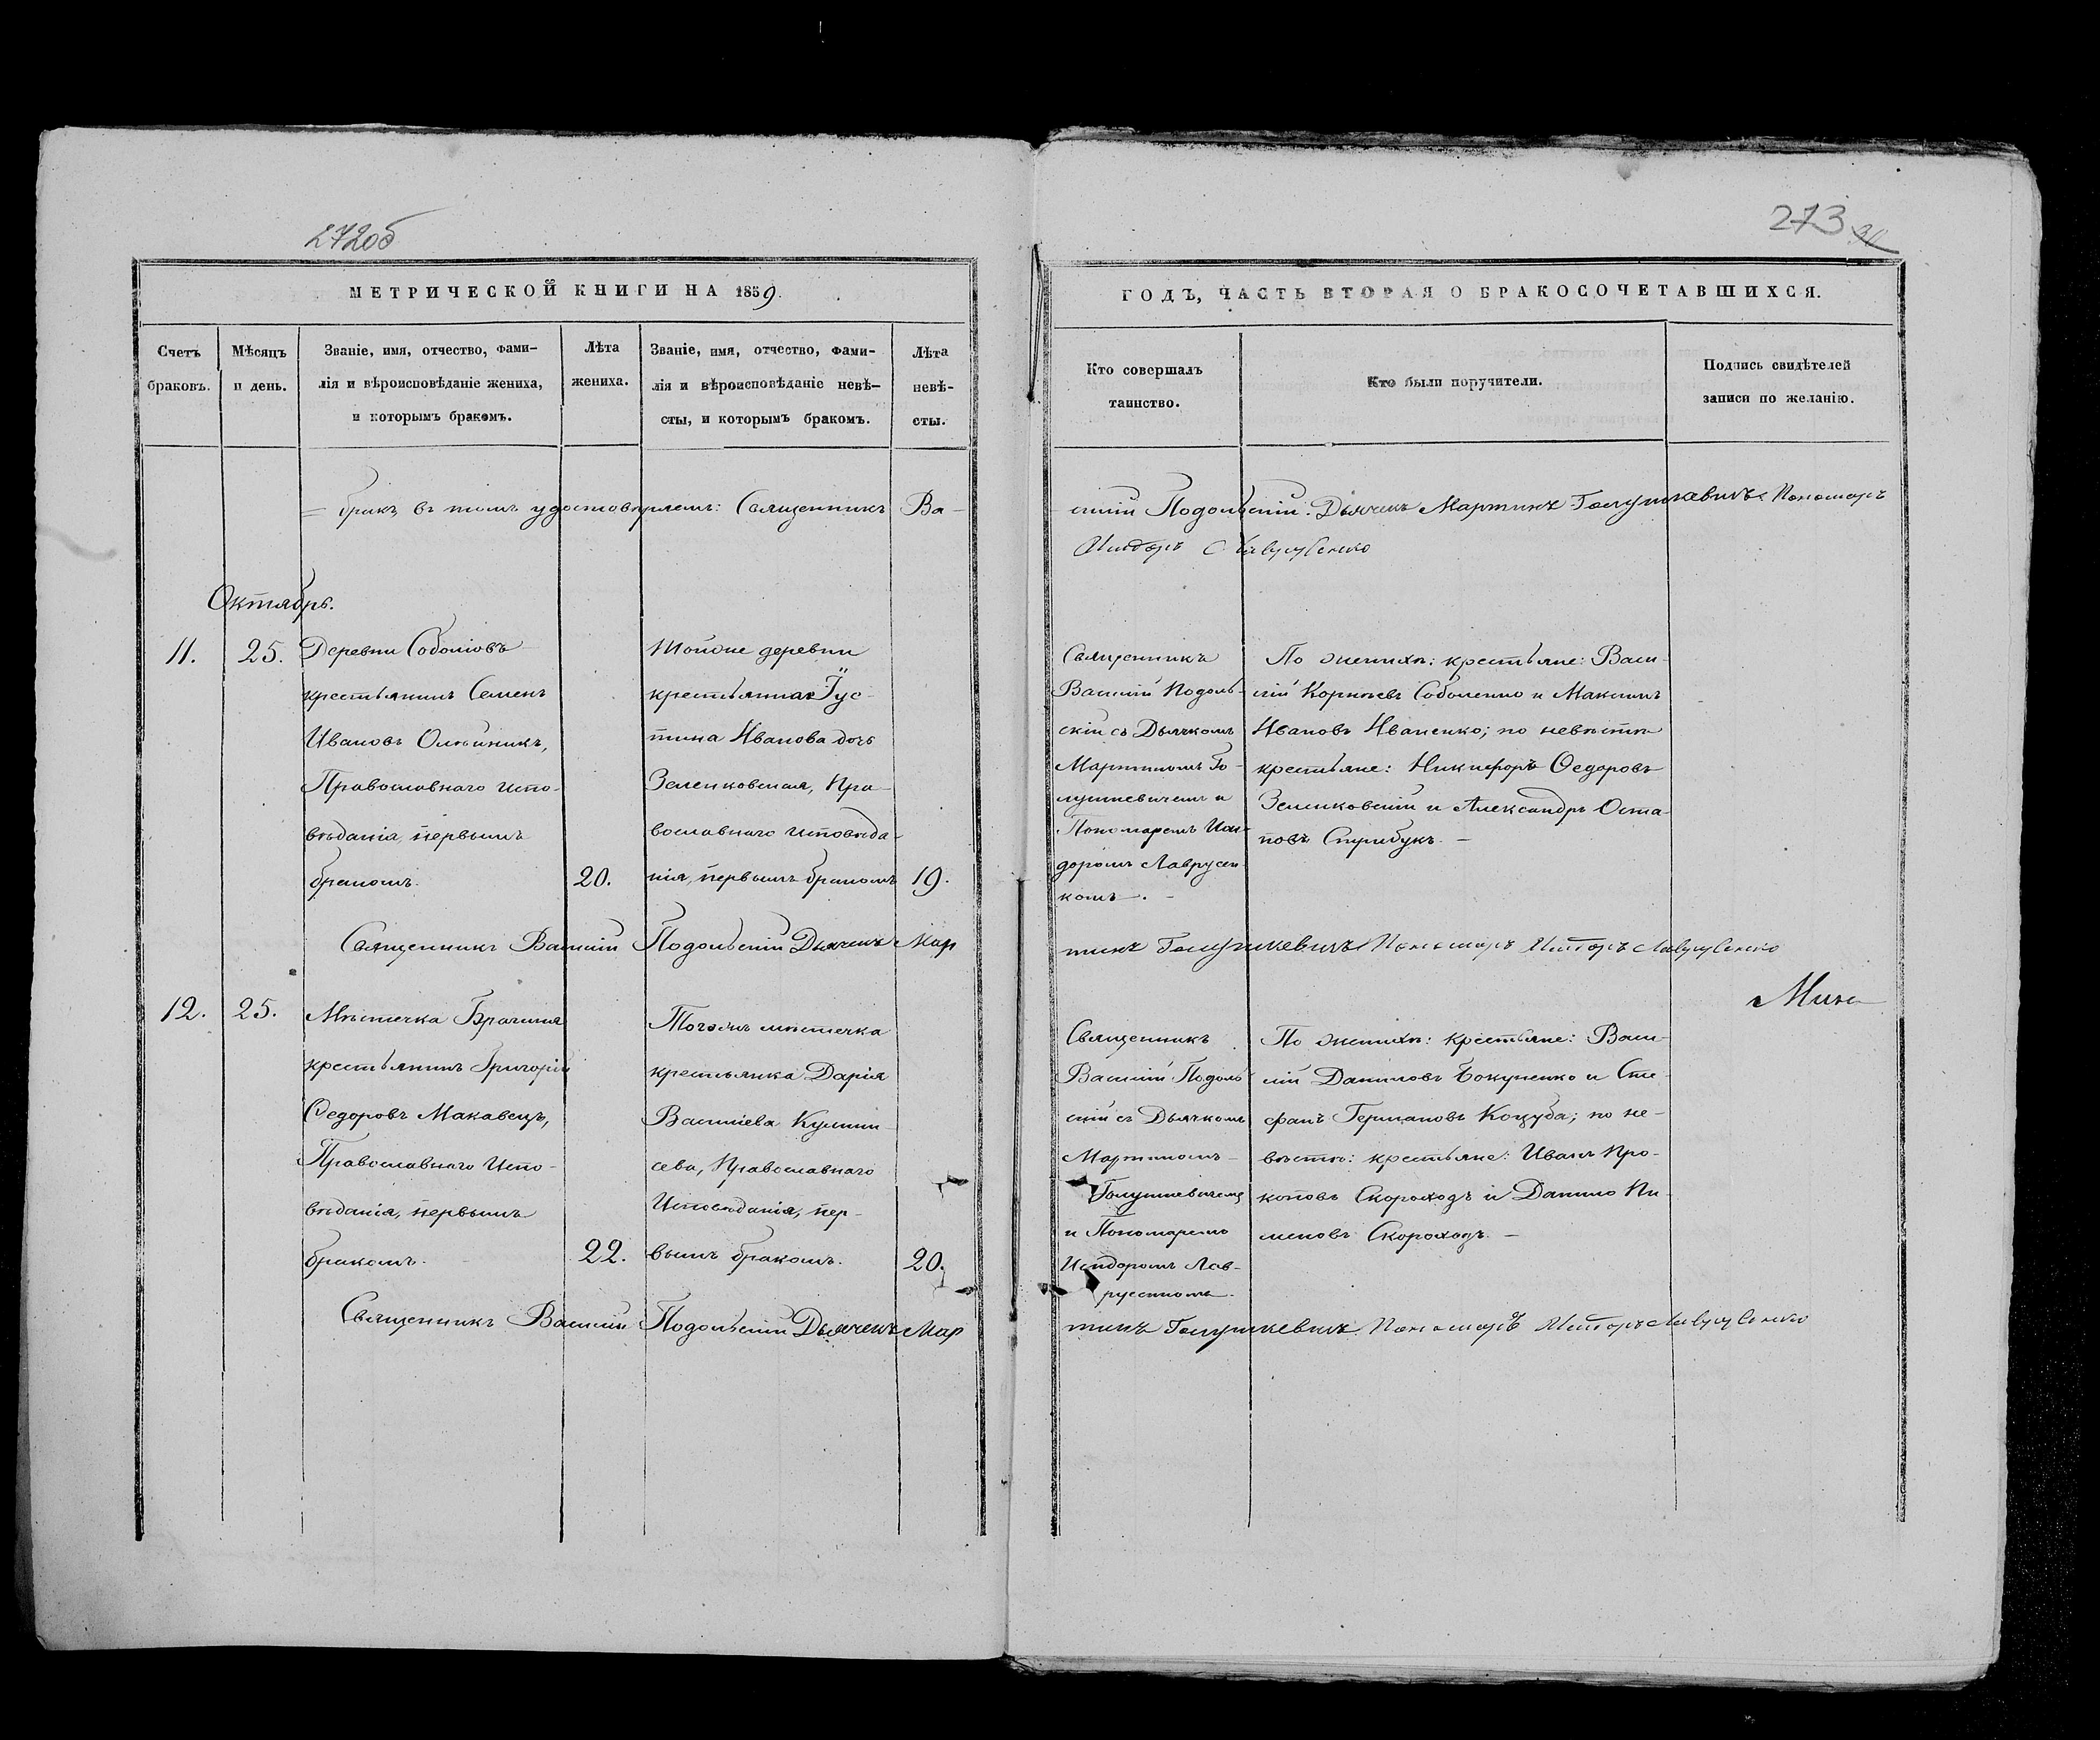 272об
МЕТРИЧЕСКОЙ КНИГИ НА 1859.
Счетъ браковъ.
Мѣсяцъ и день.
Званіе, имя, отчество, фами-
лія и вѣроисповѣданіе жениха,
и которымъ бракомъ.
Лѣта жениха.
Званіе, имя, отчество, фами-
лія и вѣроисповѣданіе невѣ-
сты, и которымъ бракомъ.
Лѣта невѣ-
сты.
бракъ въ томъ удостовѣряемъ: Священникъ Ва-
Октябрь.
11. 25.
Деревни Соболіовъ
крестьянинъ Семенъ
Ивановъ Олѣйникъ,
Православнаго испо-
вѣданія, первымъ
бракомъ.
20.
Тойже деревни
крестьянка Іус-
тина Иванова дочь
Зеленковская, Пра-
вославнаго исповѣда-
нія, первымъ бракомъ
19.
Священникъ Василій Подольскій Дьячекъ Мар
12. 25.
Мѣстечка Брагиня
крестьянинъ Григорій
Ѳедоровъ Макавецъ,
Православнаго Испо-
вѣданія, первымъ
бракомъ.
22.
Тогожъ мѣстечка
крестьянка Дарія
Василіева
Православнаго
Исповѣданія, пер-
вымъ бракомъ.
20.
Священникъ Василій Подольскій Дьячекъ Мар
273
ГОДЪ, ЧАСТЬ ВТОРАЯ О БРАКОСОЧЕТАВШИХСЯ.
Кто совершалъ
таинство.
Кто были поручители.
Подпись свидѣтелей
записи по желанію.
силій Подольскій. Дьячекъ Мартинъ Голушкевичъ Пономарь
Исидоръ Лаврусенко
Священникъ
Василій Подоль-
скій съ Дьячкомъ
Мартиномъ Го-
лушкевичемъ и
Пономаремъ Иси-
доромъ Лаврусен-
комъ.
По женихѣ: крестьяне: Васи-
лій Корнѣевъ Соболенко и Максимъ
Ивановъ Иваненко; по невѣстѣ
крестьяне: Никифоръ Ѳедоровъ
Зеленковскій и Александръ Оста-
повъ Стрибукъ. —
тинъ Голушкевичъ Пономарь Исидоръ Лаврусенко
Священникъ
Василій Подоль
скій съ Дьячкомъ
Мартиномъ
Голушкевичемъ
и Пономаремъ
Исидоромъ Лав-
русенкомъ.
По женихѣ: крестьяне: Васи-
лій Даниловъ Бокуненко и Сте-
фанъ Германовъ Коцуба; по не-
вѣстѣ: крестьяне: Иванъ Про-
коповъ Скороходъ и Данило Пи-
меновъ Скороходъ. —
тинъ Голушкевичъ Пономарь Исидоръ Лаврусенко